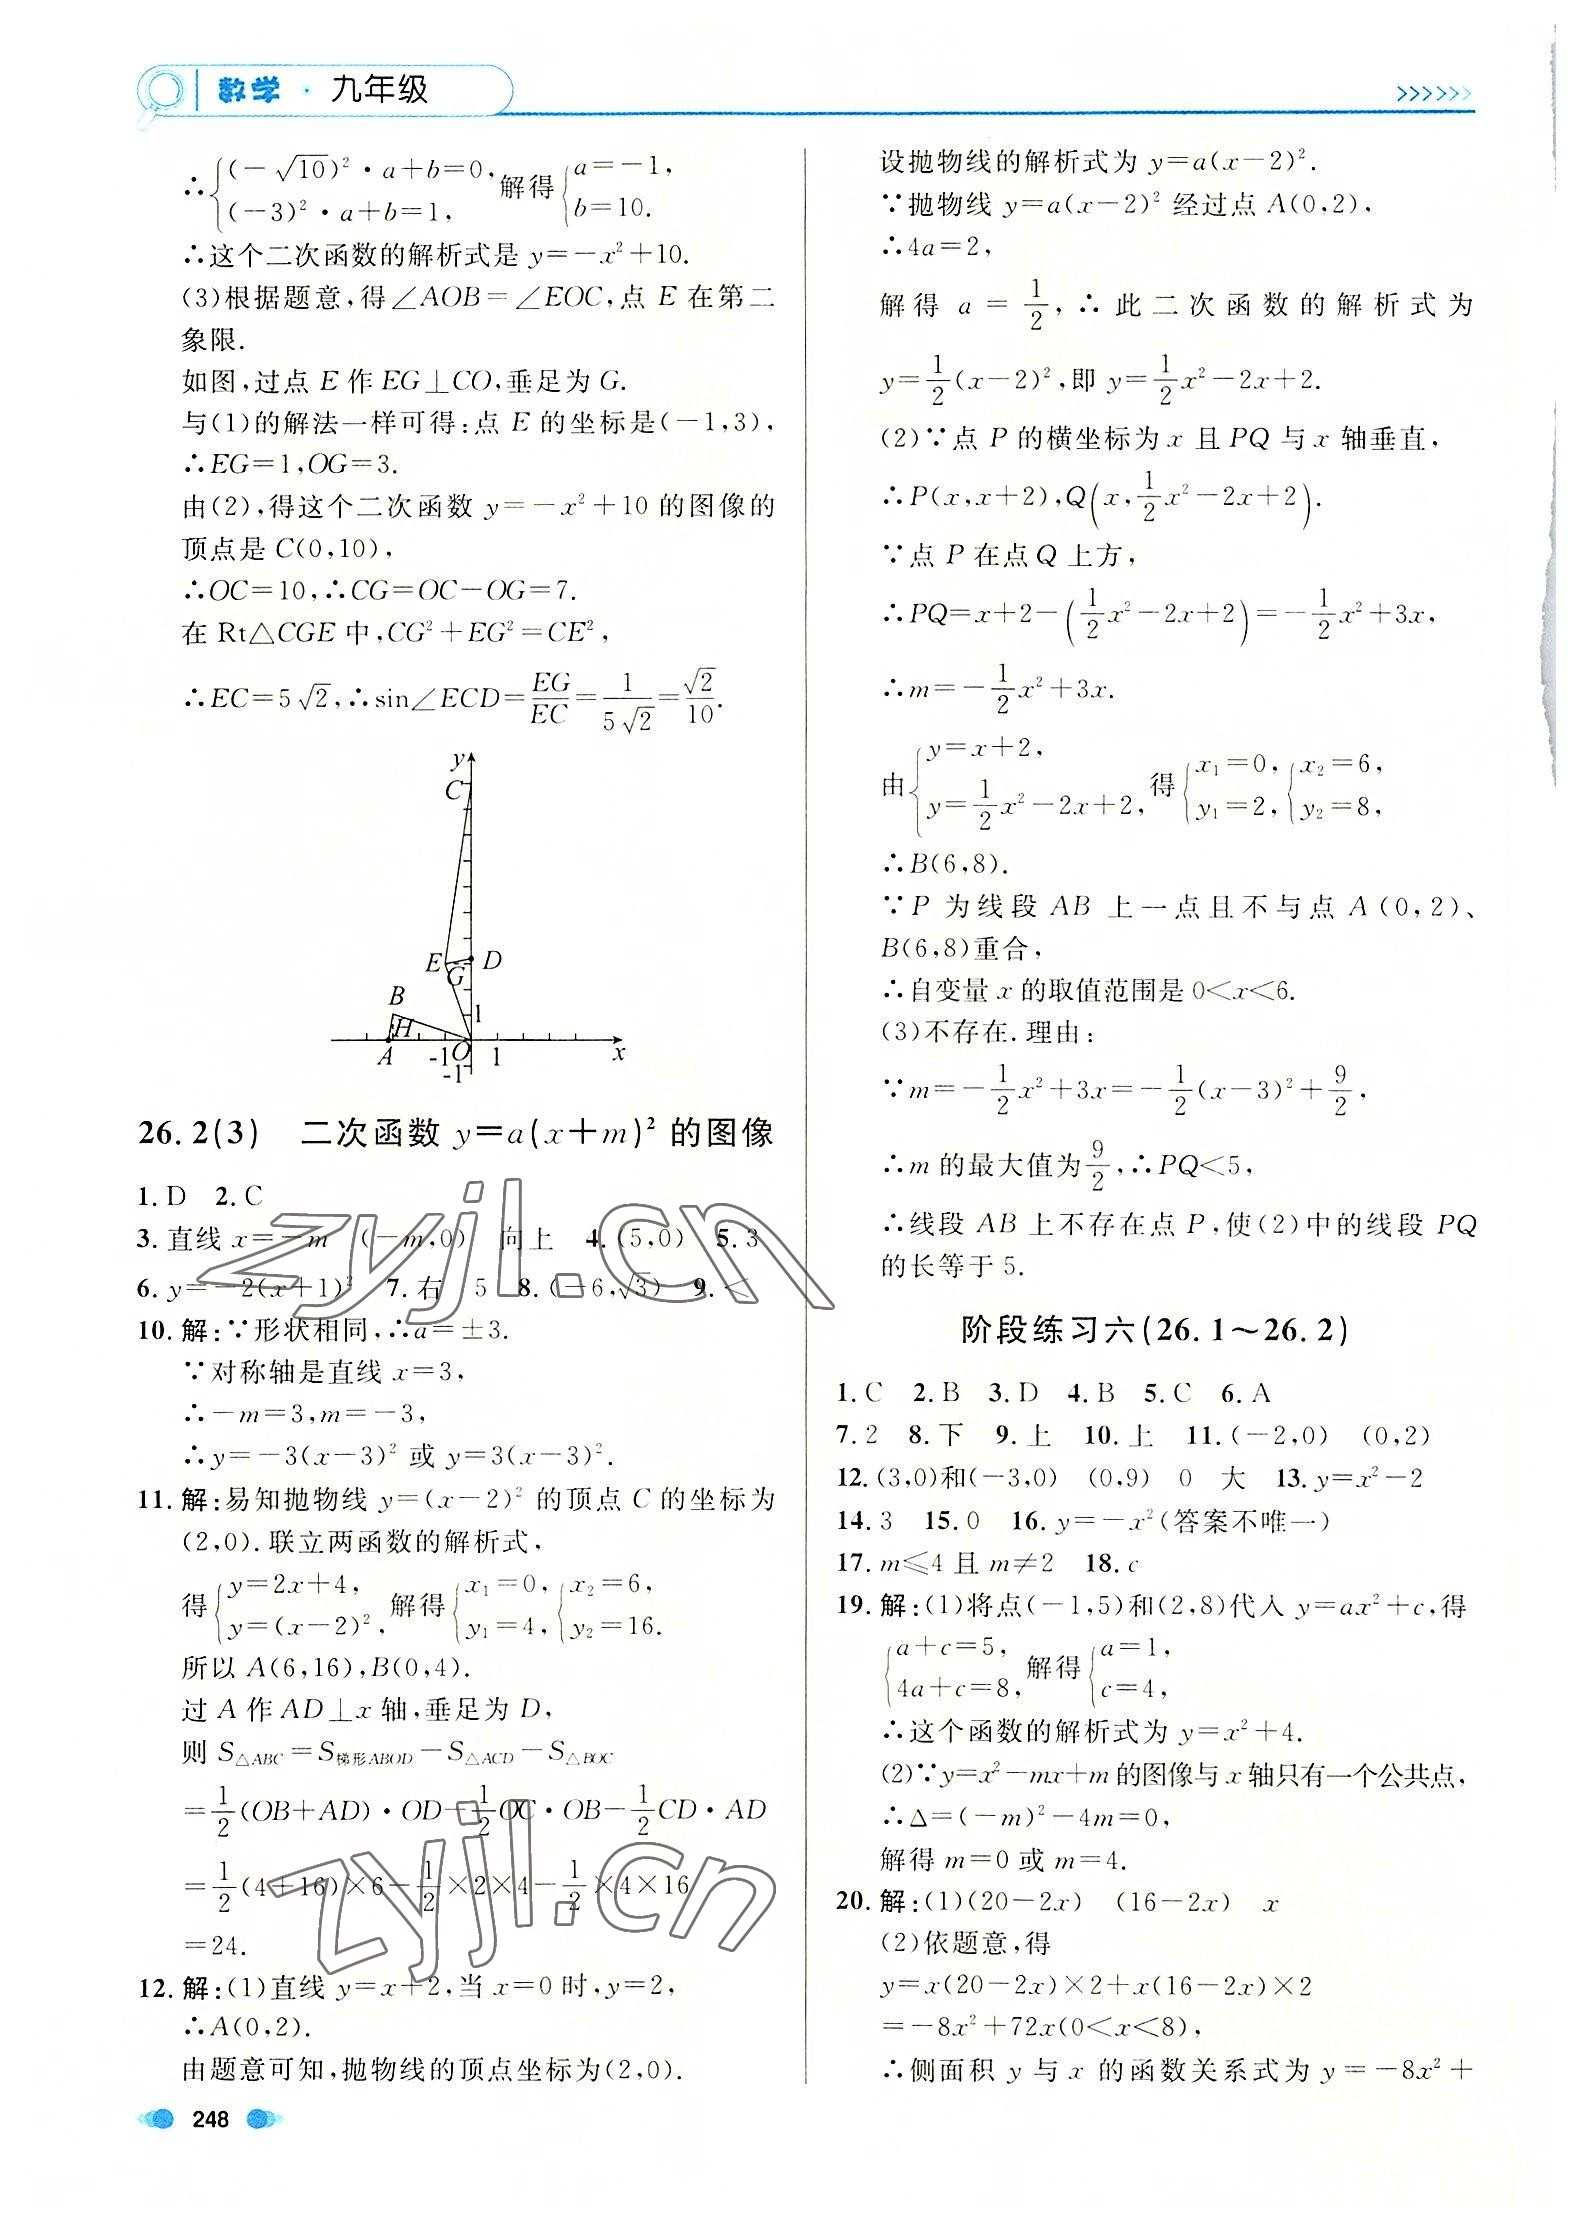 数学·九年级
∴{(-√10)²·a+b=0, (-3)²·a+b=1, 解得{a=-1, b=10.
∴这个二次函数的解析式是 y=-x²+10.
(3)根据题意,得∠AOB=∠EOC,点 E 在第二
象限.
如图,过点 E 作 EG⊥CO,垂足为 G.
与(1)的解法一样可得:点 E 的坐标是(-1,3),
∴EG=1,OG=3.
由(2),得这个二次函数 y=-x²+10 的图像的
顶点是 C(0,10),
∴OC=10,∴CG=OC-OG=7.
在 Rt△CGE 中,CG²+EG²=CE²,
∴EC=5√2,∴sin∠ECD=EG/EC=1/(5√2)=√2/10.
y
C
E
G
D
B
H
1
A
-1
O
1
x
-1
26.2(3) 二次函数 y=a(x+m)² 的图像
1. D 2. C
3. 直线 x=-m (-m,0) 向上 4. (5,0) 5. 3
6. y=-2(x+1)² 7. 右 5 8. (-6,√3) 9. <
10. 解:∵形状相同,∴a=±3.
∵对称轴是直线 x=3,
∴-m=3,m=-3,
∴y=-3(x-3)² 或 y=3(x-3)².
11. 解:易知抛物线 y=(x-2)² 的顶点 C 的坐标为
(2,0).联立两函数的解析式,
得{y=2x+4, y=(x-2)², 解得{x₁=0, y₁=4, {x₂=6, y₂=16.
所以 A(6,16),B(0,4).
过 A 作 AD⊥x 轴,垂足为 D,
则 S△ABC=S梯形ABOD-S△ACD-S△BOC
=1/2(OB+AD)·OD-1/2OC·OB-1/2CD·AD
=1/2(4+16)×6-1/2×2×4-1/2×4×16
=24.
12. 解:(1)直线 y=x+2,当 x=0 时,y=2,
∴A(0,2).
由题意可知,抛物线的顶点坐标为(2,0).
设抛物线的解析式为 y=a(x-2)².
∵抛物线 y=a(x-2)² 经过点 A(0,2),
∴4a=2,
解得 a=1/2,∴此二次函数的解析式为
y=1/2(x-2)²,即 y=1/2x²-2x+2.
(2)∵点 P 的横坐标为 x 且 PQ 与 x 轴垂直,
∴P(x,x+2),Q(x,1/2x²-2x+2).
∵点 P 在点 Q 上方,
∴PQ=x+2-(1/2x²-2x+2)=-1/2x²+3x,
∴m=-1/2x²+3x.
由{y=x+2, y=1/2x²-2x+2, 得{x₁=0, y₁=2, {x₂=6, y₂=8,
∴B(6,8).
∵P 为线段 AB 上一点且不与点 A(0,2)、
B(6,8)重合,
∴自变量 x 的取值范围是 0<x<6.
(3)不存在.理由:
∵m=-1/2x²+3x=-1/2(x-3)²+9/2,
∴m 的最大值为9/2,∴PQ<5,
∴线段 AB 上不存在点 P,使(2)中的线段 PQ
的长等于 5.
阶段练习六(26.1~26.2)
1. C 2. B 3. D 4. B 5. C 6. A
7. 2 8. 下 9. 上 10. 上 11. (-2,0) (0,2)
12. (3,0)和(-3,0) (0,9) 0 大 13. y=x²-2
14. 3 15. 0 16. y=-x²(答案不唯一)
17. m≤4 且 m≠2 18. c
19. 解:(1)将点(-1,5)和(2,8)代入 y=ax²+c,得
{a+c=5, 4a+c=8, 解得{a=1, c=4,
∴这个函数的解析式为 y=x²+4.
(2)∵y=x²-mx+m 的图像与 x 轴只有一个公共点,
∴△=(-m)²-4m=0,
解得 m=0 或 m=4.
20. 解:(1)(20-2x) (16-2x) x
(2)依题意,得
y=x(20-2x)×2+x(16-2x)×2
=-8x²+72x(0<x<8),
∴侧面积 y 与 x 的函数关系式为 y=-8x²+
248
zyjl.cn
zyjl.cn